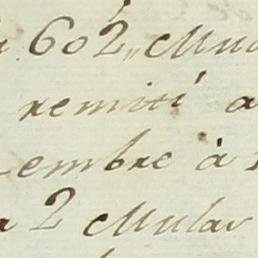 602,, Mu
remiti a
embre à
2 Mular